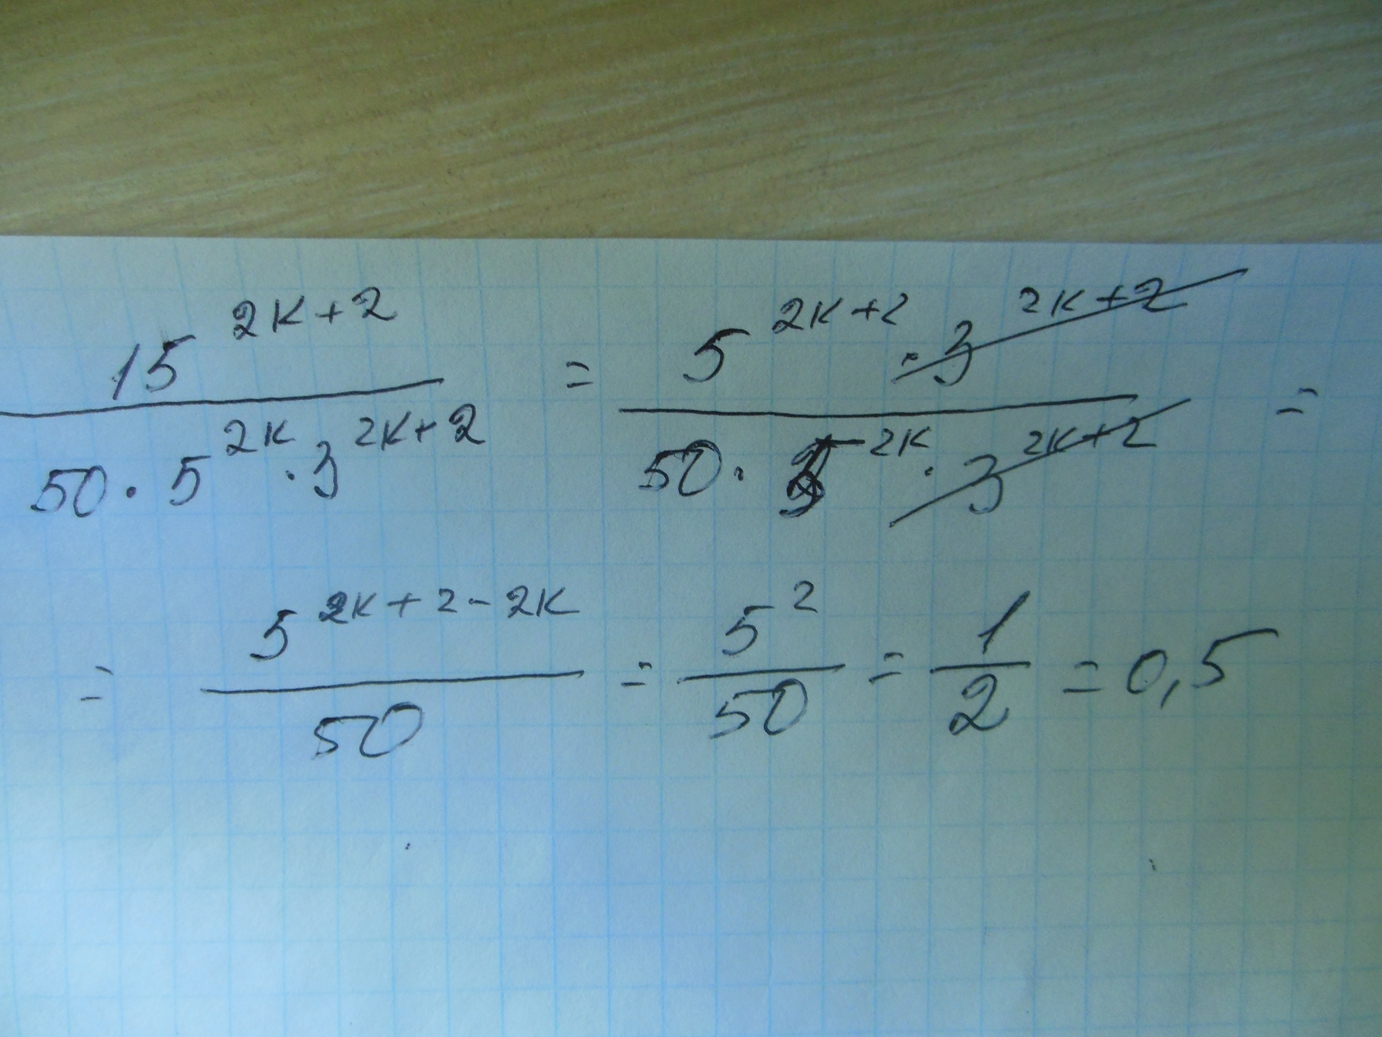 15^{2к+2} / (50 · 5^{2к} · 3^{2к+2}) = (5^{2к+2} · 3^{2к+2}) / (50 · 5^{2к} · 3^{2к+2}) =
= 5^{2к+2-2к} / 50 = 5^2 / 50 = 1/2 = 0,5